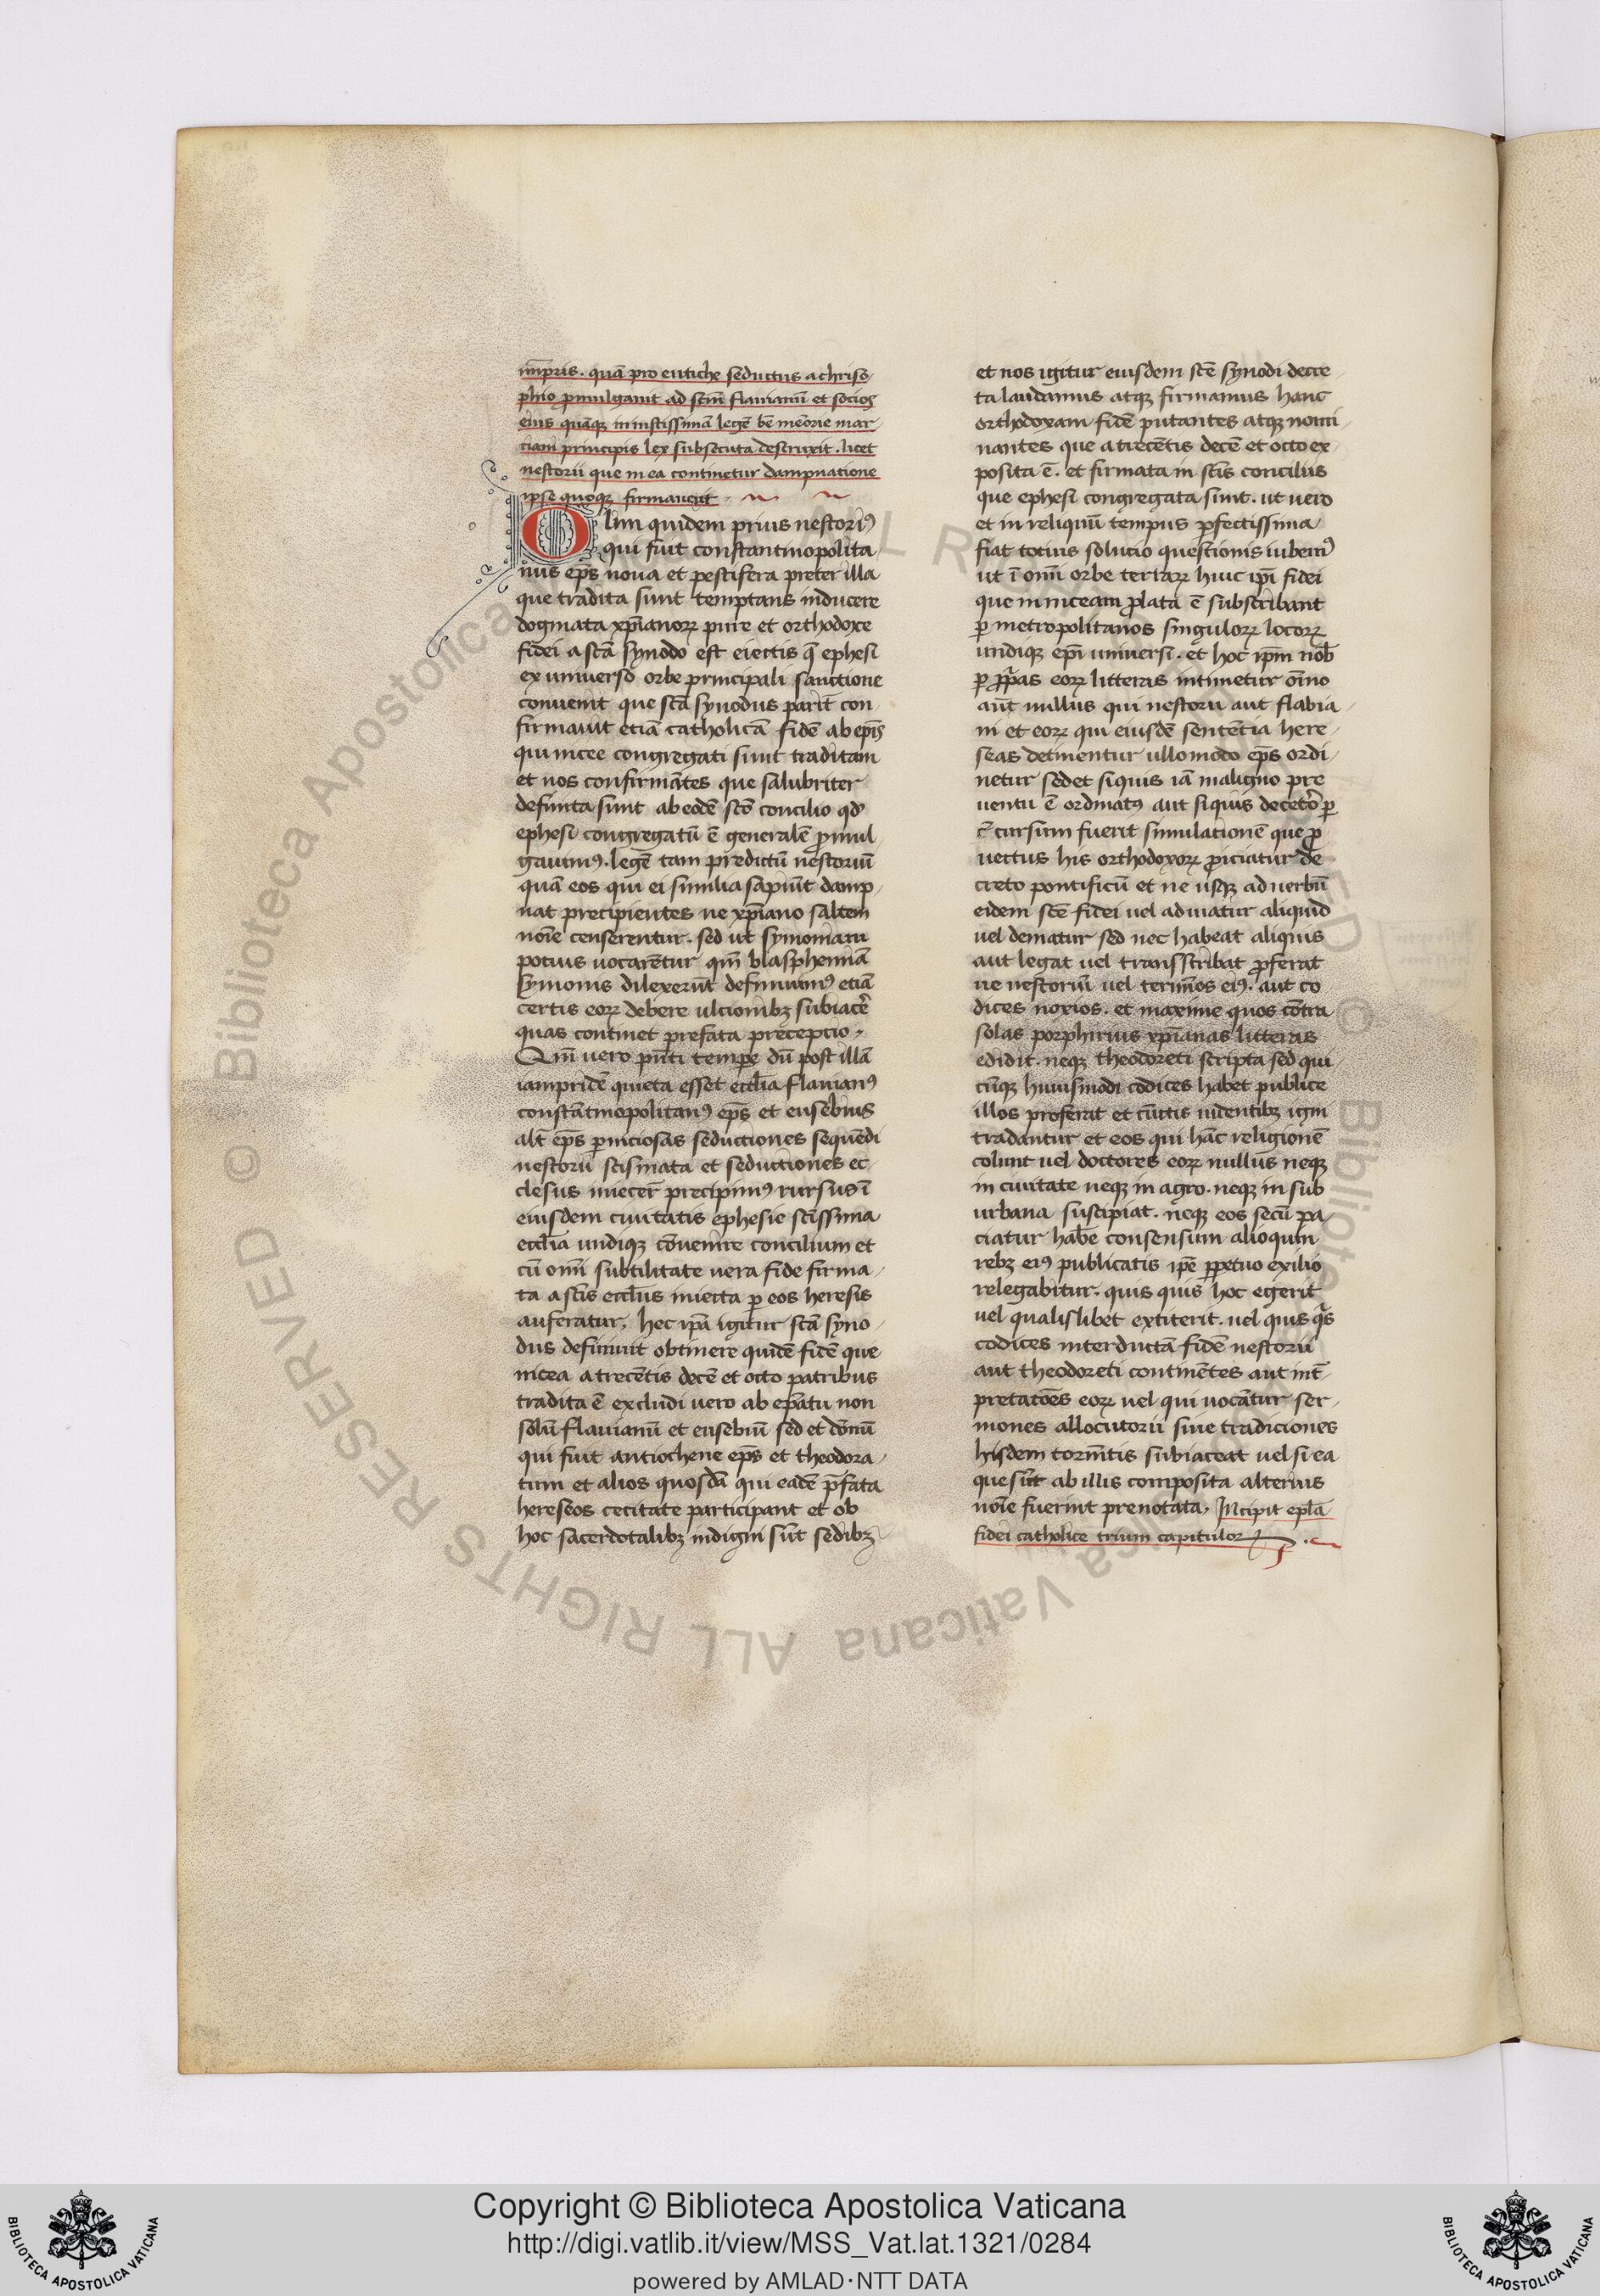 imꝑris. quā pro eutiche seductus a chriso
phio ꝓmulgauit ad scm̄ flauianū et socios
eius quāqꝫ iniustissimā legē bē meōrie mar
ciani principis lex subsecuta destruxit. licet
nestorii que in ea continetur dampnatione
ipse quoqꝫ firmauerit
Olim quidem prius nestoriꝰ
qui fuit constantinopolita
nus ep̄s noua et pestifera preter illa
que tradita sunt temptans inducere
dogmata xp̄ianoꝝ pure et orthodoxe
fidei a scā synodo est eiectus q̄ ephesi
ex uniuerso orbe principali sanctione
conuenit que scā synodus parit̄ con
firmauit etiā catholicā fidē ab ep̄is
qui nicee congregati sunt traditam
et nos confirmātes que salubriter
definita sunt ab eodē scō concilio qd
ephesi congregatū ē generalē ꝓmul
gauimꝰ. legē tam predictū nestoriū
quā eos qui ei similia sapiūt damp
nat precipientes ne xp̄iano saltem
noīe censerentur. sed ut symoniani
potius uocarētur qm̄ blasphemiā
symonis dilexerūt definiuimꝰ etiā
certis eoꝝ debere ulcionibꝫ subiacēr
quas continet prefata precepcio.
Qm̄ uero pn̄ti tempe dū post illā
iampridē quieta esset eccl̄ia flauianꝰ
constātinopolitanꝰ ep̄s et eusebius
alt̄ ep̄s ꝑniciosas seductiones sequēdi
nestoriū scismata et seductiones ec
clesiis iniecer̄ precipimꝰ rursus ī
eiusdem ciuitatis ephesie scīssima
eccl̄ia undiqꝫ cōuenire concilium et
cū omī subtilitate uera fide firma
ta a scīs eccl̄iis iniecta ꝑ eos heresis
auferatur. hec ip̄a igitur scā syno
dus definiuit obtinere quidē fidē que
nicea a trecētis decē et octo patribus
tradita ē excludi uero ab ep̄atu non
solū flauianū et eusebiū sed et dōnū
qui fuit antiochene ep̄s et theodora
tum et alios quosdā qui eadē p̄fata
hereseos cecitate participant et ob
hoc sacerdotalibꝫ indigni sūt sedibꝫ
et nos igitur eiusdem scē synodi decre
ta laudamus atqꝫ firmamus hanc
orthodoxam fidē putantes atqꝫ nomi
nantes que a trecētis decē et octo ex
posita ē. et firmata in scīs conciliis
que ephesi congregata sunt. ut uero
et in reliquū tempus ꝑfectissima
fiat totius solucio questionis iubemꝰ
ut ī omī orbe terraꝝ huic ip̄i fidei
que in niceam ꝓlata ē subscribant
ꝑ metropolitanos singuloꝝ locoꝝ
undiqꝫ ep̄i uniuersi. et hoc ip̄m nob̄
ꝑ ꝓprias eoꝝ litteras intimetur oīno
aut̄ nullus qui nestorii aut flabia
ni et eoꝝ qui eiusdē sentētia here
seas detinentur ullomodo ep̄s ordi
netur sedet siquis iā maligno pre
uentu ē ordinatꝰ aut siquis decetō ꝑ
cursum fuerit simulationē que ꝓ
uectus his orthodoxoꝝ ꝓiciatur de
creto pontificū et ne usqꝫ ad uerbū
eidem scē fidei uel adiuatur aliquid
uel dematur sed nec habeat aliquis
aut legat uel transscribat ꝓferat
ue nestoriū uel terminos eiꝰ. aut co
dices noxios. et maxime quos cōtra
solas porphirius xp̄ianas litteras
edidit. neqꝫ theodoreti scripta sed qui
cūqꝫ huiusmodi codices habet publice
illos proferat et cūctis uidentibꝫ igni
tradantur et eos qui hāc religionē
colunt uel doctores eoꝝ nullus neqꝫ
in ciuitate neqꝫ in agro. neqꝫ in sub
urbana suscipiat. neqꝫ eos secū pa
ciatur habe consensum alioquin
rebꝫ eiꝰ publicatis ip̄e ꝑpetuo exilio
relegabitur. quis quis hoc egerit
uel qualislibet extiterit. uel quis q̄s
codices interdictā fidē nestorii
aut theodoreti continētes aut int̄
pretatōes eoꝝ uel qui uocātur ser
mones allocutorii siue tradiciones
hisdem tormītis subiaceat uel si ea
que sūt ab illis composita alterius
noīe fuerint prenotata. Incipit epl̄a
fidei catholice trium capituloꝝ
© Biblioteca Apostolica Vaticana ALL RIGHTS RESERVED
Copyright © Biblioteca Apostolica Vaticana
http://digi.vatlib.it/view/MSS_Vat.lat.1321/0284
powered by AMLAD·NTT DATA
BIBLIOTECA APOSTOLICA VATICANA
BIBLIOTECA APOSTOLICA VATICANA